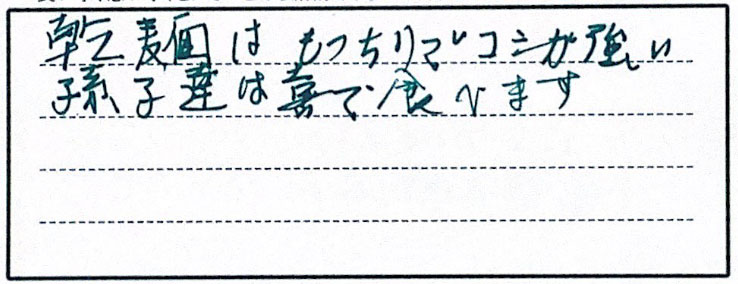 乾麺は もっちりでコシが強い
孫子達は喜で食べます